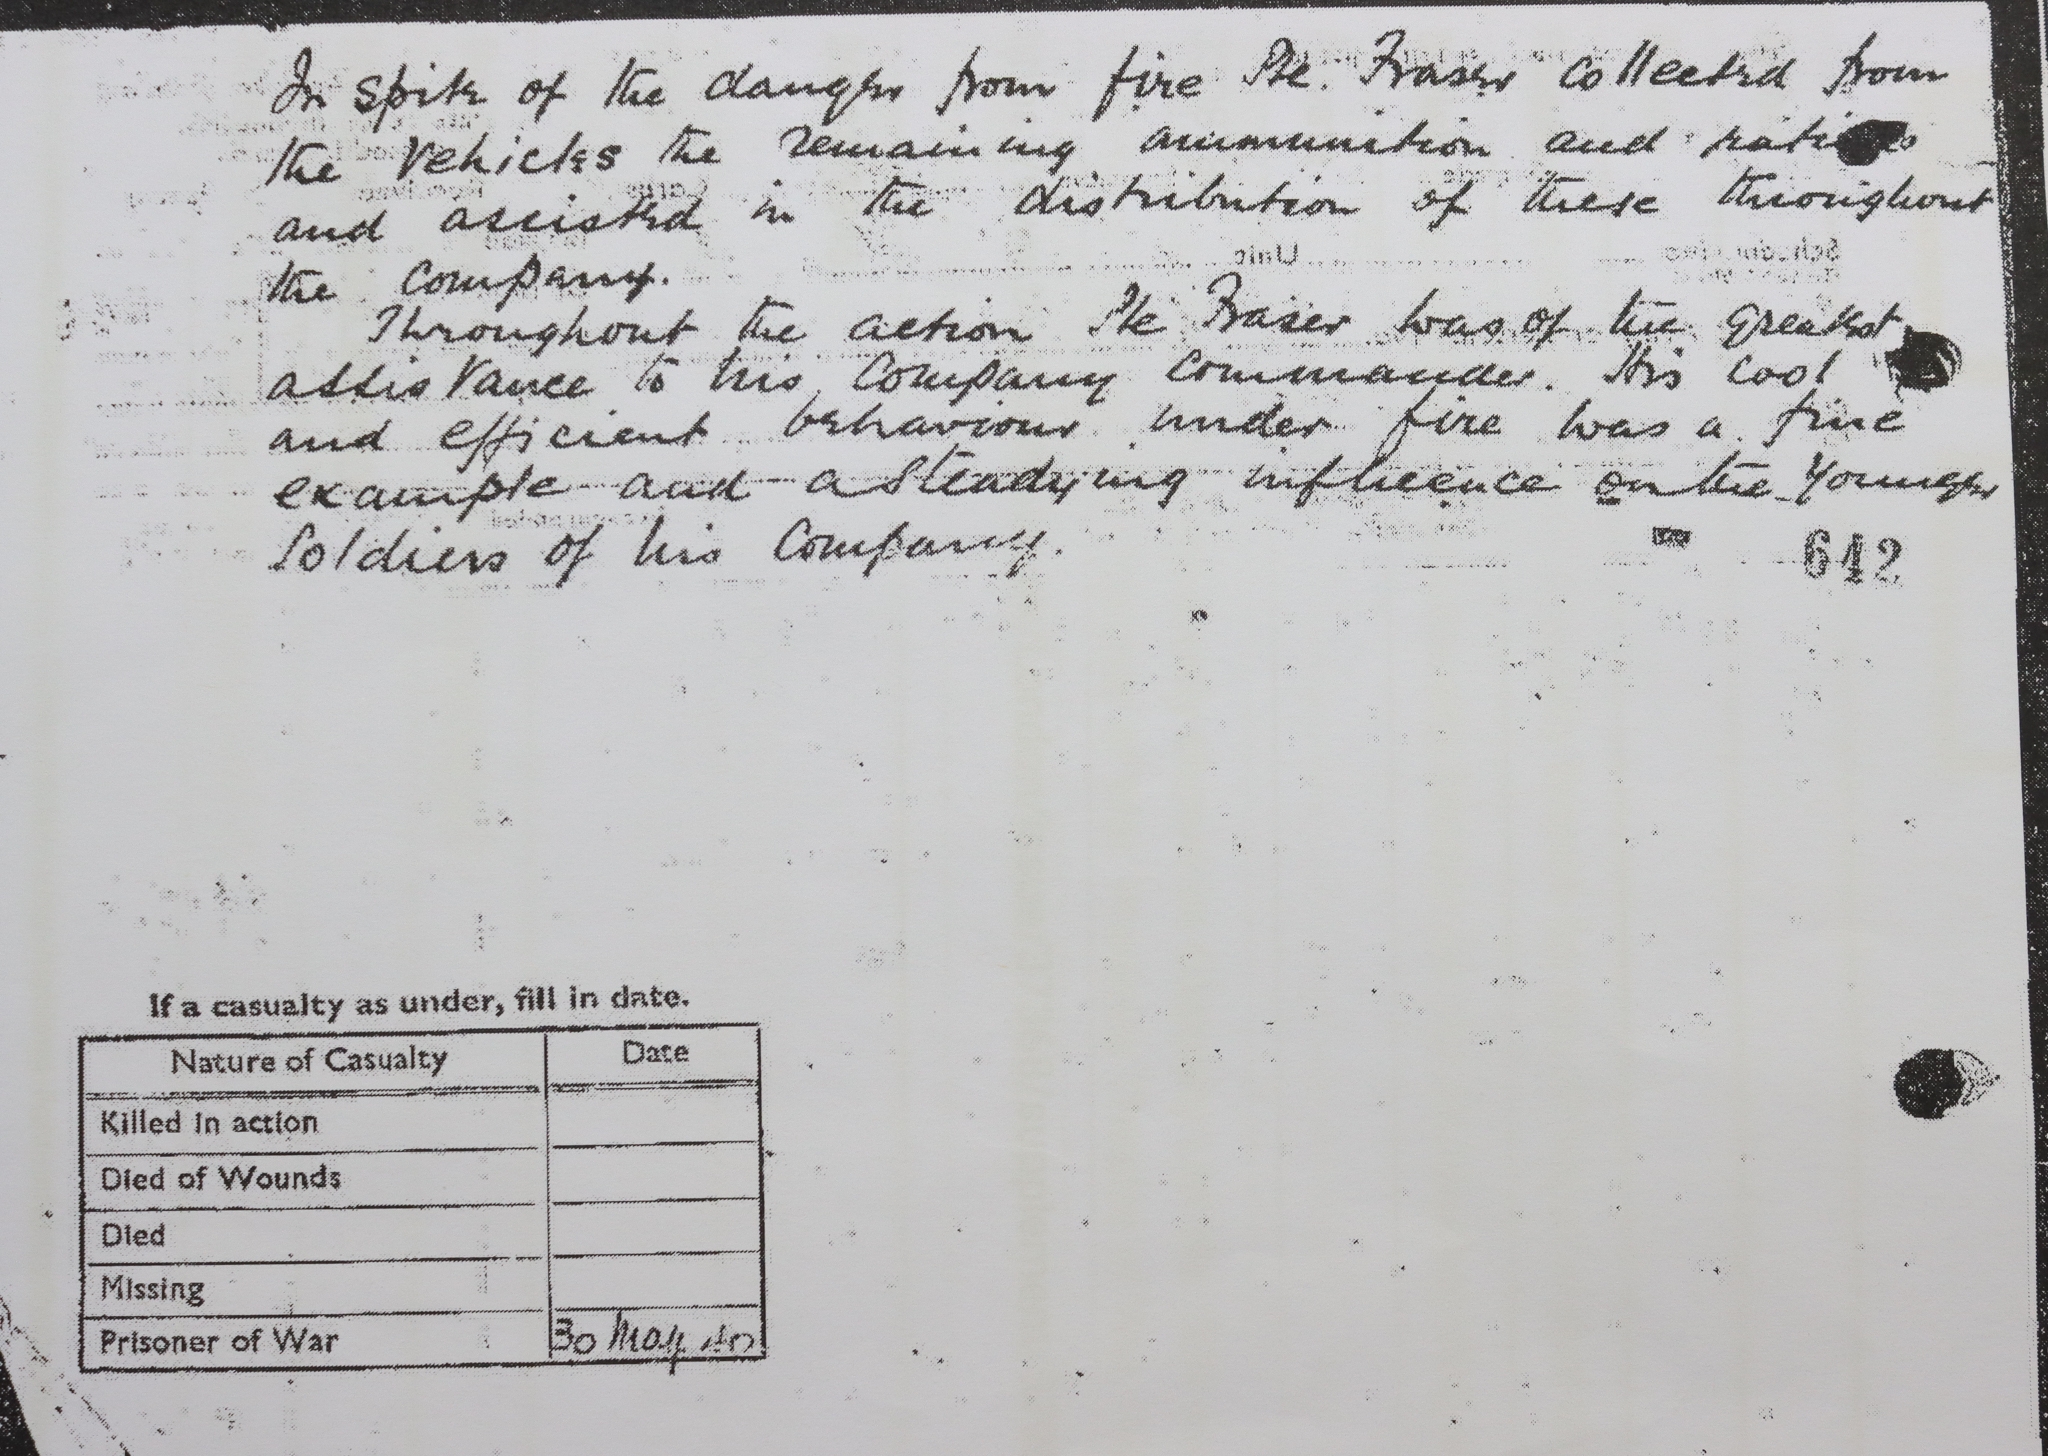 In spite of the danger from fire Pte. Fraser collected from
the vehicles the remaining ammunition and rations
and assisted in the distribution of these throughout
the Company.
Throughout the action Pte Fraser was of the greatest
assistance to his Company Commander. His cool
and efficient behaviour under fire was a fine
example and a steadying influence on the younger
soldiers of his Company.
642
If a casualty as under, fill in date.
Nature of Casualty Date
Killed in action
Died of Wounds
Died
Missing
Prisoner of War 30 May 40